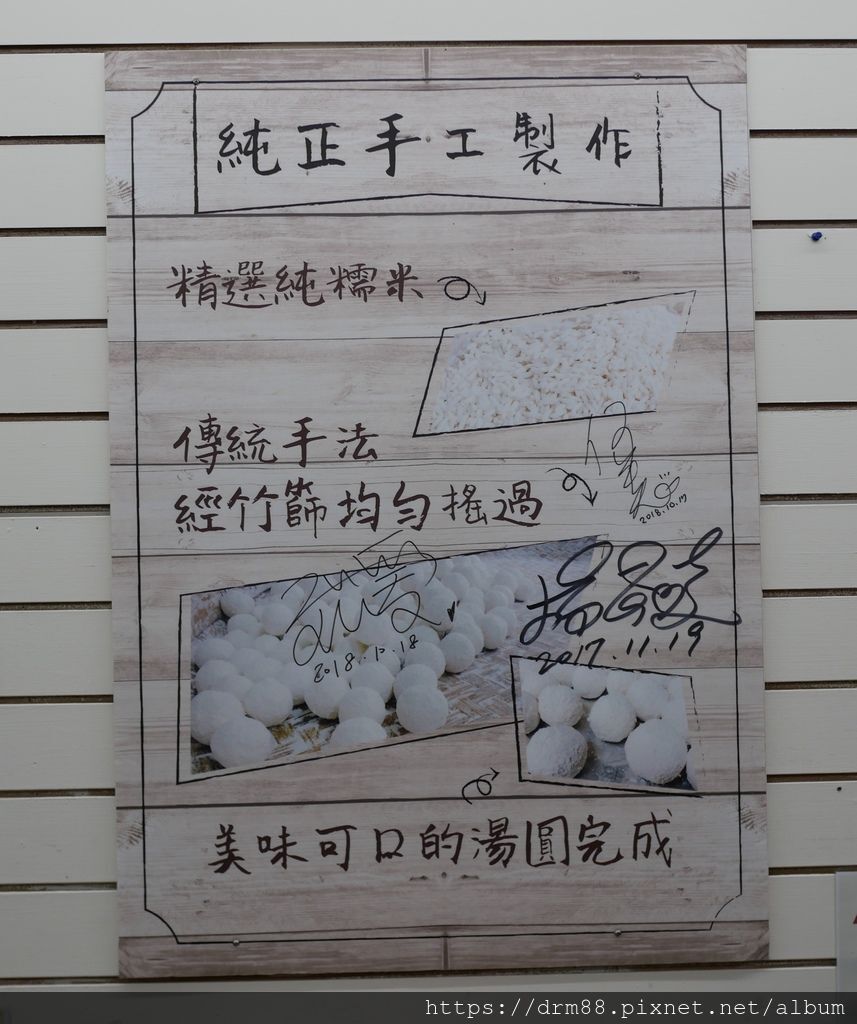 純正手工製作
精選純糯米
傳統手法
經竹篩均勻搖過
2018.10.19
2018.10.18
2017.11.19
美味可口的湯圓完成
https://drm88.pixnet.net/album